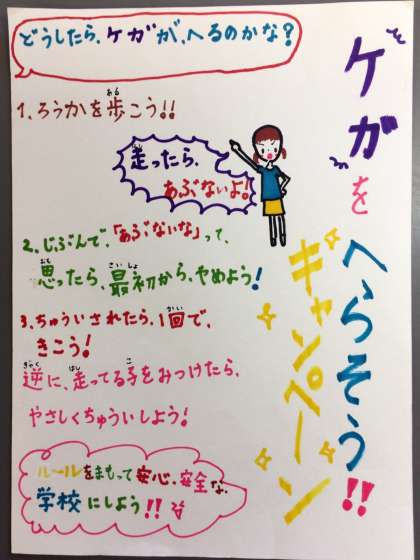 ケガを
へらそう!!
キャンペーン
どうしたら、ケガが、へるのかな?
1、ろうかを歩こう!!
走ったら、
あぶないよ!
2、じぶんで、「あぶないな」って、
思ったら、最初から、やめよう!
3、ちゅういされたら、1回で、
きこう!
逆に、走ってる子をみつけたら、
やさしくちゅういしよう!
ルールをまもって安心、安全な、
学校にしよう!!